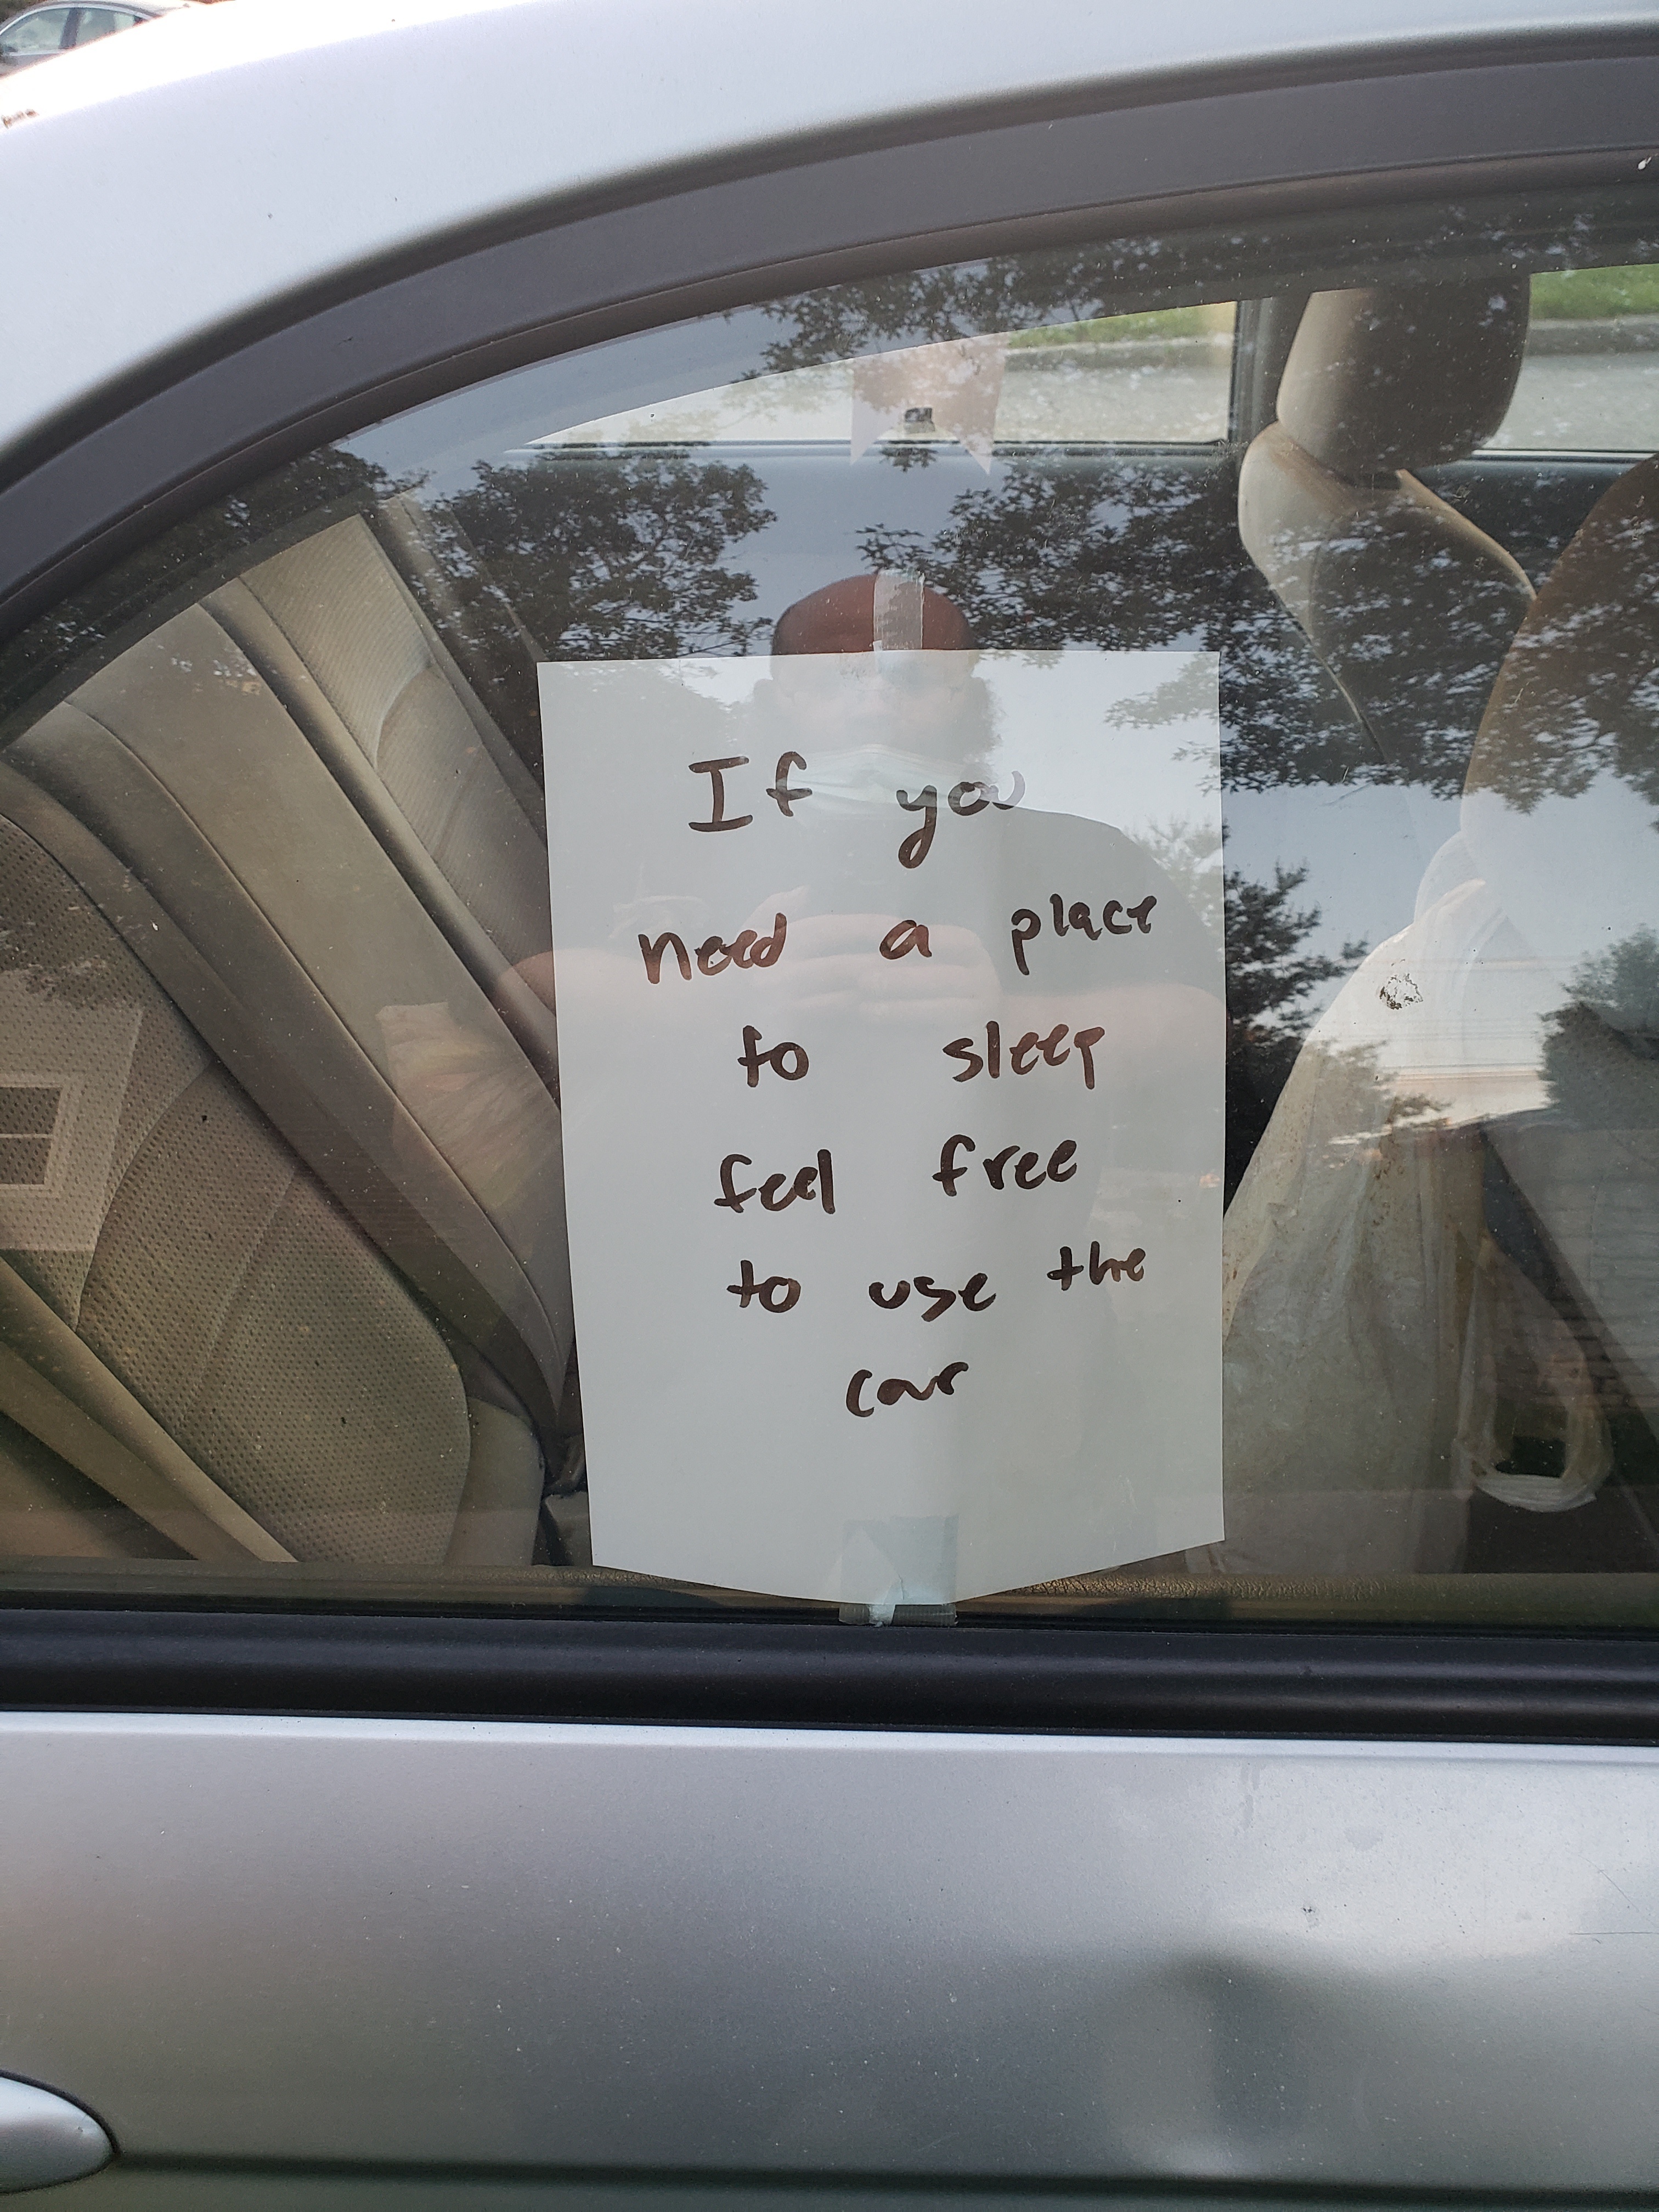 If you
need a place
to sleep
feel free
to use the
car